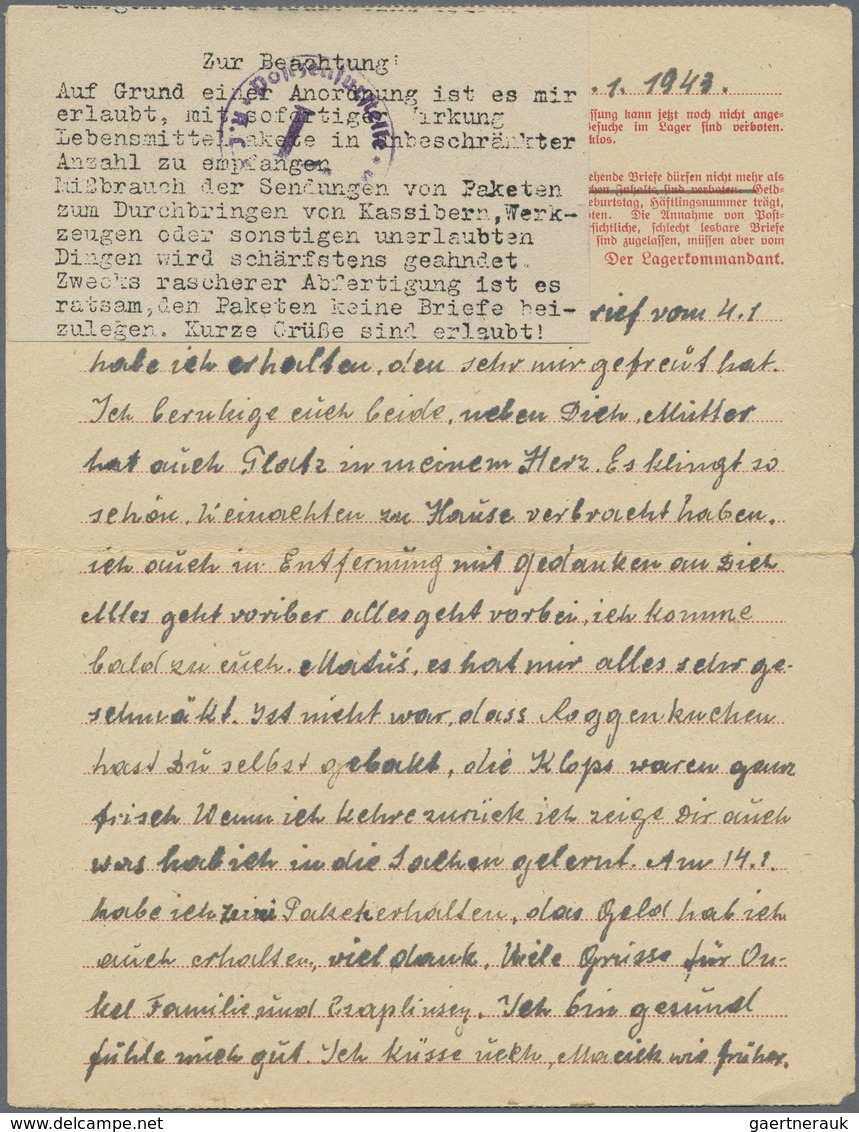 Zur Beachtung!
Auf Grund einer Anordnung ist es mir
erlaubt, mit sofortiger Wirkung
Lebensmittelpakete in unbeschränkter
Anzahl zu empfangen
Mißbrauch der Sendungen von Paketen
zum Durchbringen von Kassibern, Werk-
zeugen oder sonstigen unerlaubten
Dingen wird schärfstens geahndet.
Zwecks rascherer Abfertigung ist es
ratsam, den Paketen keine Briefe bei-
zulegen. Kurze Grüße sind erlaubt!
Postzensurstelle
.1. 1943.
ssung kann jetzt noch nicht ange-
esuche im Lager sind verboten.
klos.
ehende Briefe dürfen nicht mehr als
hen Inhalts sind verboten. Geld-
eburtstag, Häftlingsnummer trägt,
oten. Die Annahme von Post-
sichtliche, schlecht lesbare Briefe
sind zugelassen, müssen aber vom
Der Lagerkommandant.
rief vom 4.1
habe ich erhalten, den sehr mir gefreut hat.
Ich beruhige euch beide, neben Dich, Mutter
hat auch Platz in meinem Herz. Es klingt so
schön, Weinachten zu Hause verbracht haben,
ich auch in Entfernung mit Gedanken an Dich
Alles geht voriber alles geht vorbei, ich komme
bald zu euch. Matuś, es hat mir alles sehr ge-
schmäkt. Ist nicht war, dass Roggenkuchen
hast Du selbst gebakt, die Klops waren ganz
frisch Wenn ich kehre zurück ich zeige Dir auch
was hab ich in die Sachen gelernt. Am 14.1.
habe ich Paket erhalten, das Geld hab ich
auch erhalten, viel dank, Viele Grüsse für On-
kel Familie, und Czaplinscy. Ich bin gesund
fühle mich gut. Ich küsse uech, Maciek wie früher.
gaertnerauk